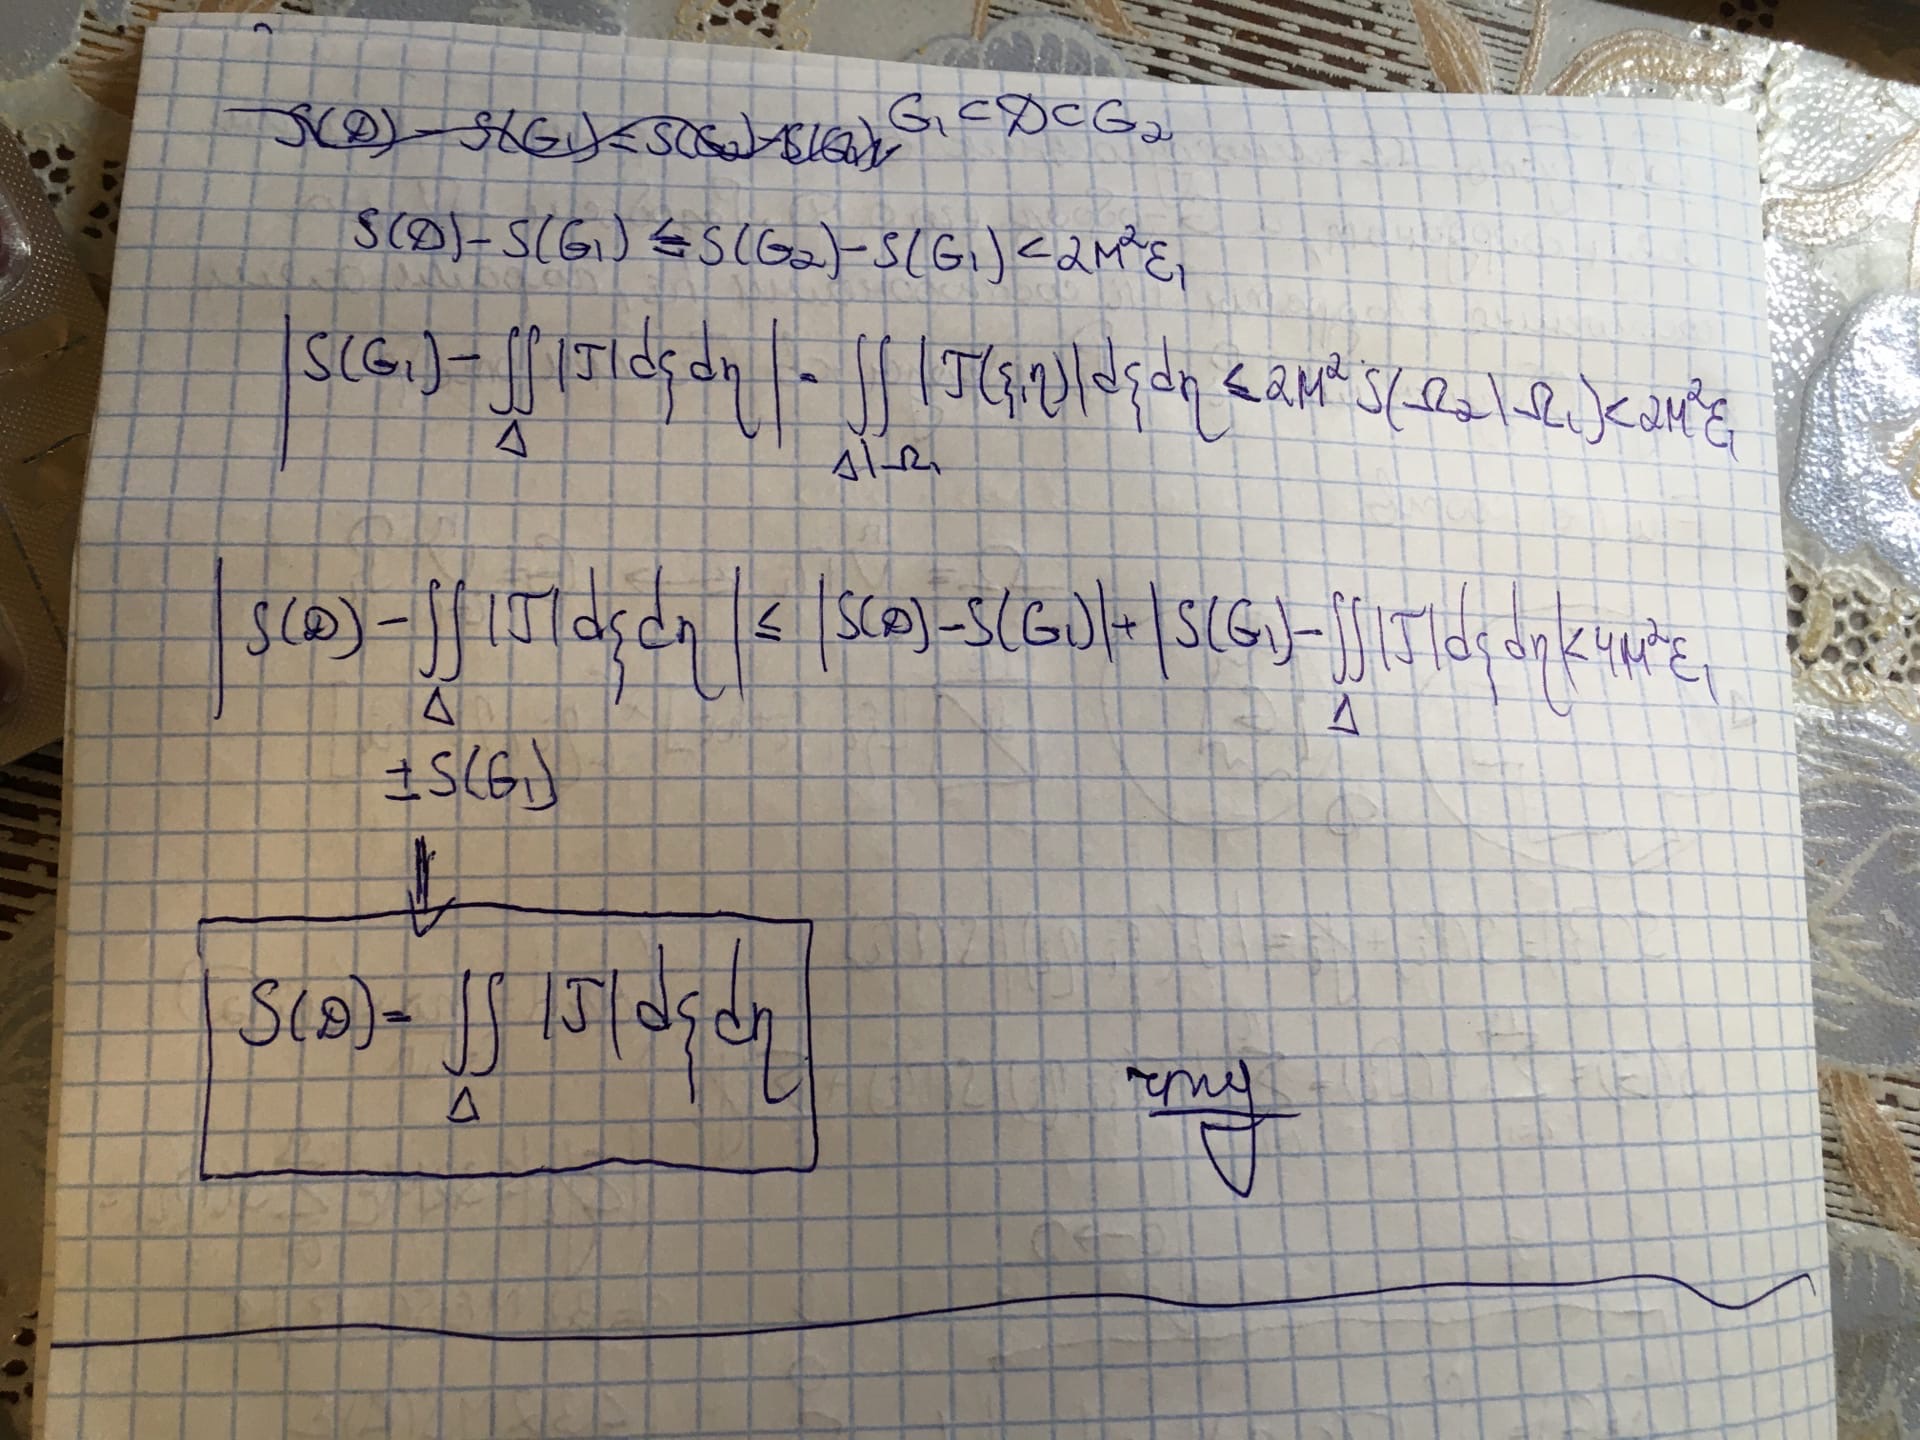 G₁ ⊂ D ⊂ G₂
S(D) - S(G₁) ≤ S(G₂) - S(G₁) < 2M²ε₁
|S(G₁) - ∬_Δ |J| dξ dη| = ∬_{Δ\Ω₁} |J(ξ,η)| dξ dη ≤ 2M² S(Ω₂\Ω₁) < 2M²ε₁
|S(D) - ∬_Δ |J| dξ dη| ≤ |S(D) - S(G₁)| + |S(G₁) - ∬_Δ |J| dξ dη| < 4M²ε₁
± S(G₁)
⇓
S(D) = ∬_Δ |J| dξ dη
чтд